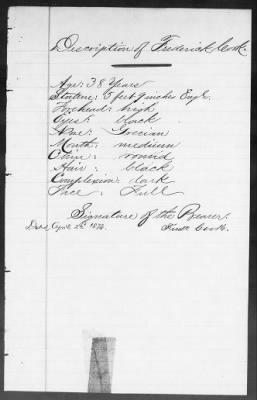 Description of Frederick Cook.
Age: 38 Years
Stature: 5 feet 9 inches Engl.
Forehead: high
Eyes: black
Nose: Grecian
Mouth: medium
Chin: round
Hair: black
Complexion: dark
Face: Full
Signature of the Bearer:
Dated April 1874. Fredk Cook.